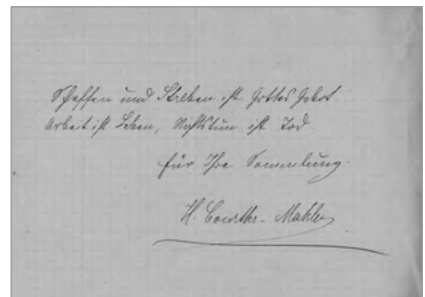 Schaffen und Streben ist Gottes Gebot.
Arbeit ist Leben, Nichtstun ist Tod.
Für Ihre Sammlung.
H. Courths-Mahler